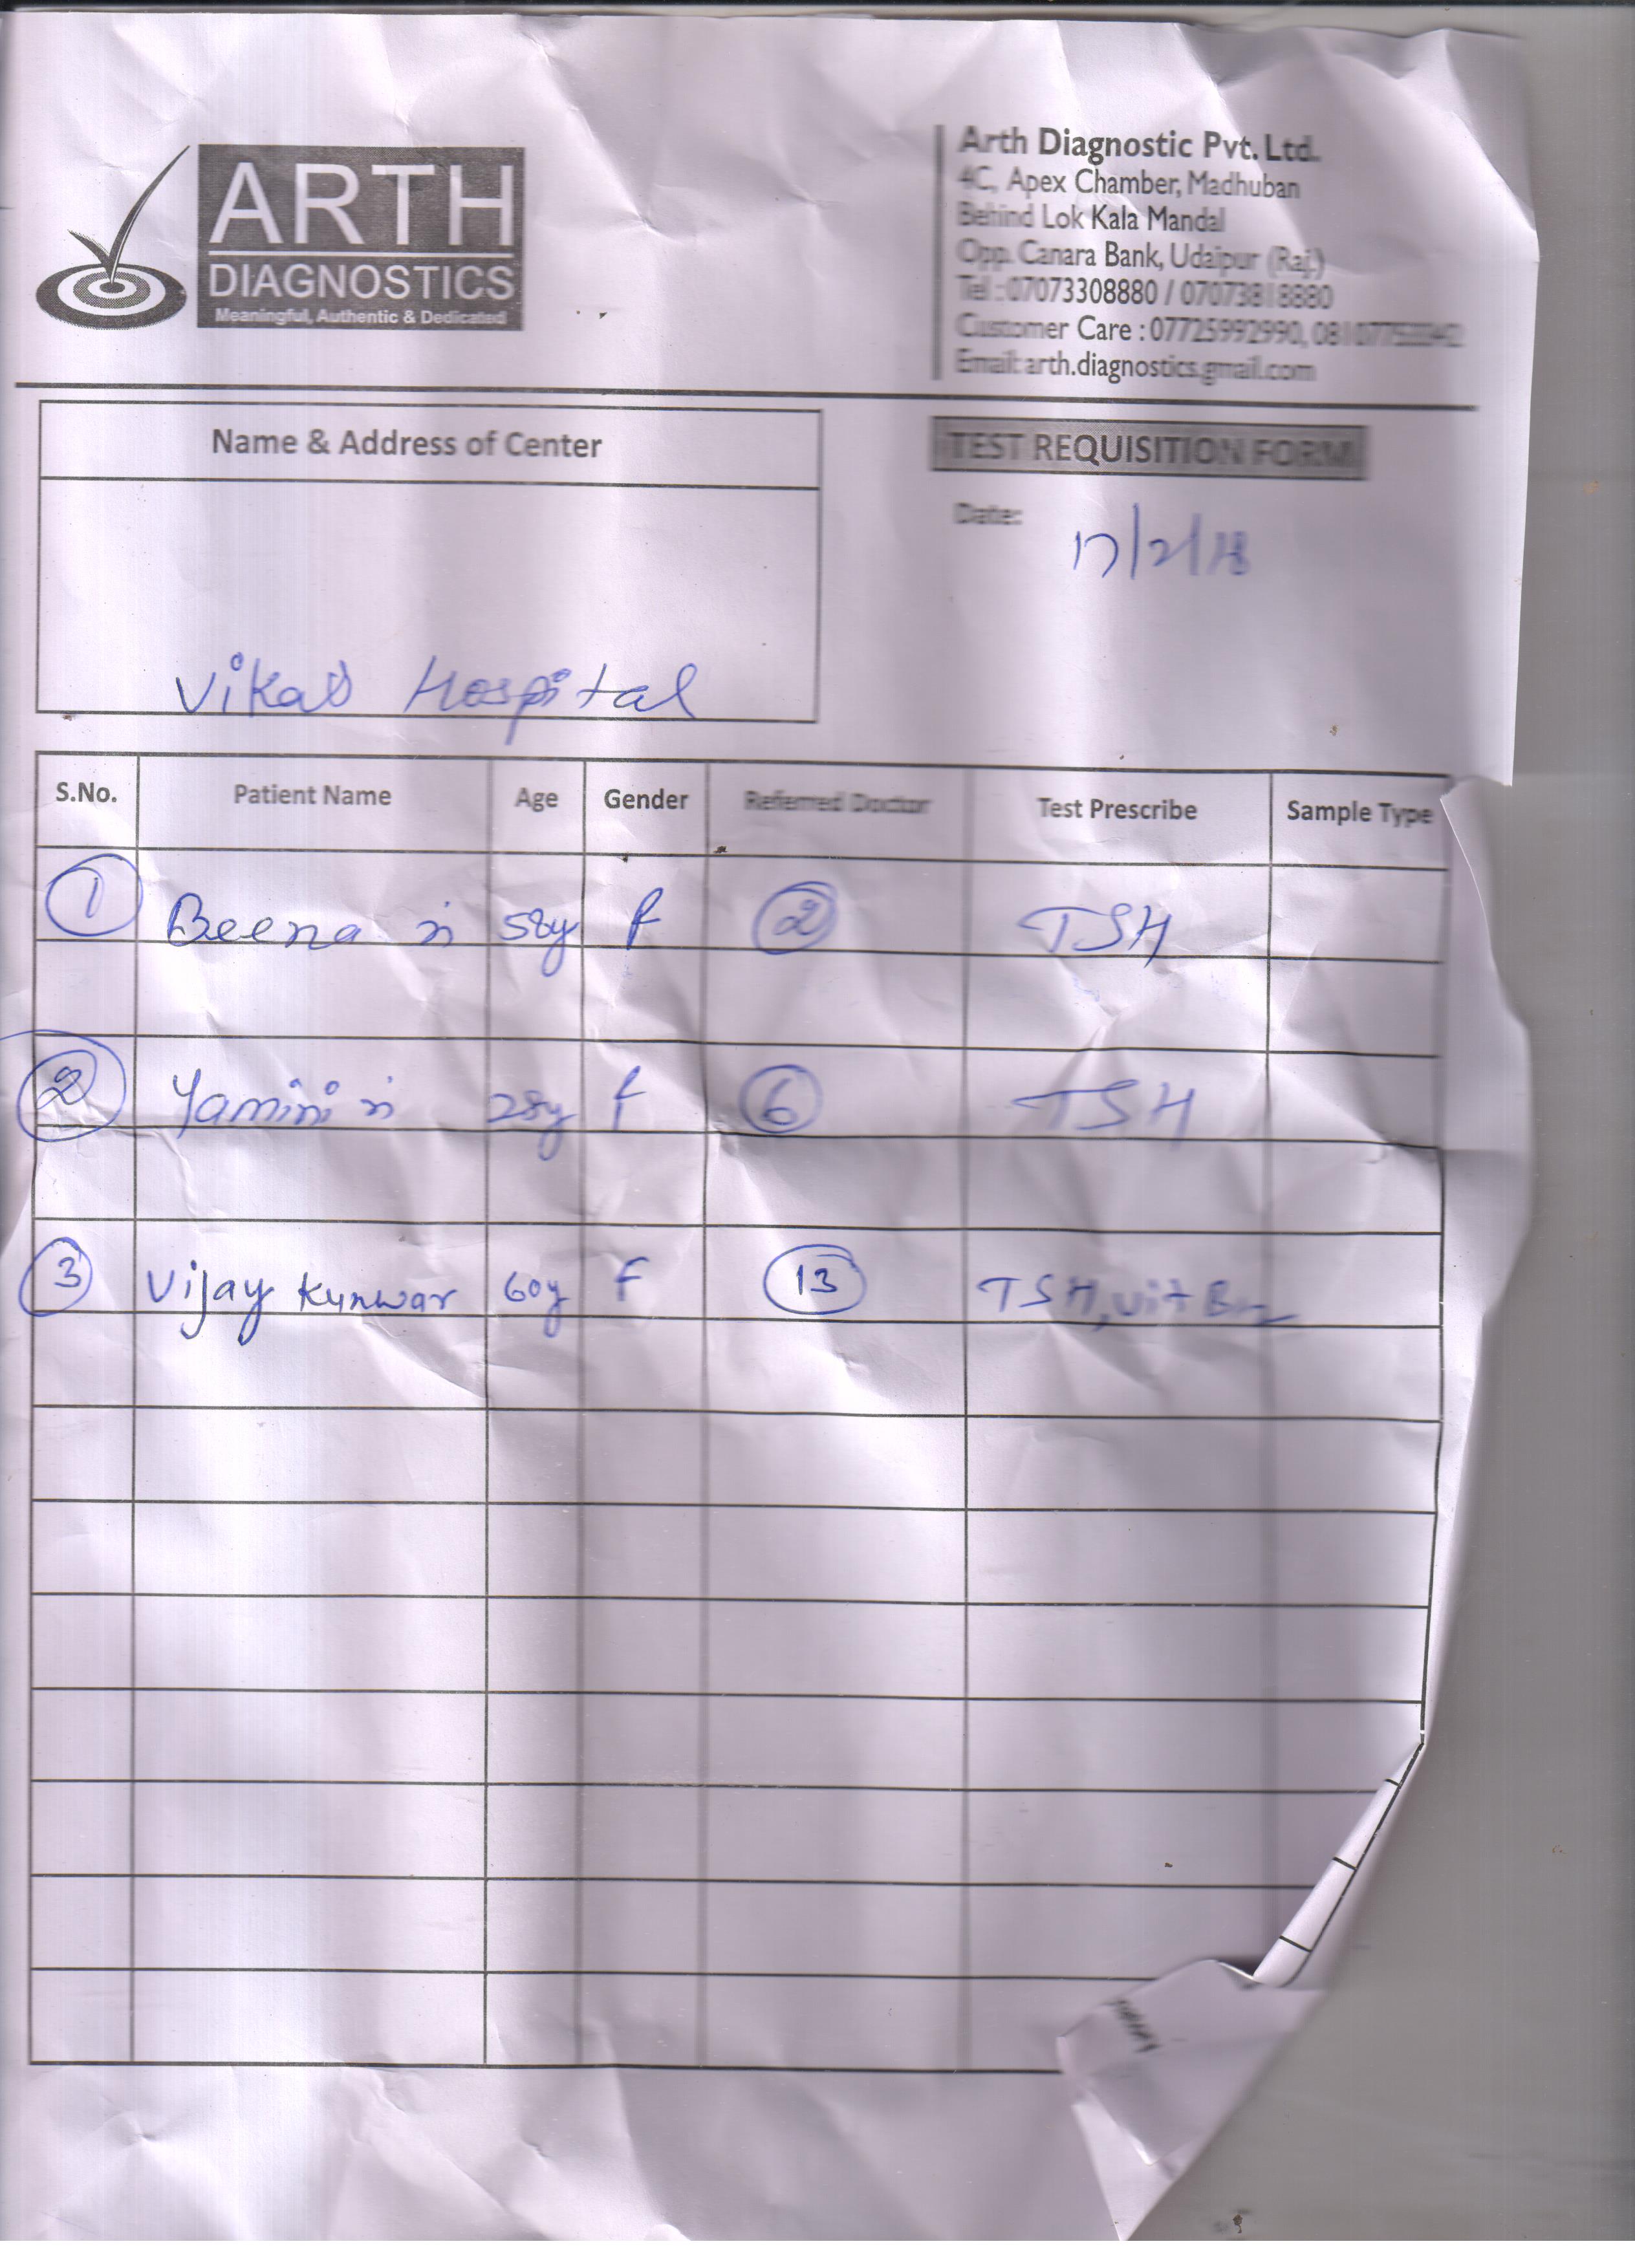 ARTH
DIAGNOSTICS
Meaningful, Authentic & Dedicated
Arth Diagnostic Pvt. Ltd.
4C, Apex Chamber, Madhuban
Behind Lok Kala Mandal
Opp. Canara Bank, Udaipur (Raj.)
Tel : 07073308880 / 07073818880
Customer Care : 07725992990,
Email: arth.diagnostics.gmail.com
Name & Address of Center
Vikas Hospital
TEST REQUISITION FORM
Date: 17/2/18
S.No. Patient Name Age Gender Referred Doctor Test Prescribe Sample Type
1 Beena 58y f 2 TSH
2 Yamini 28y f 6 TSH
3 Vijay Kunwar 60y F 13 TSH, vit B12